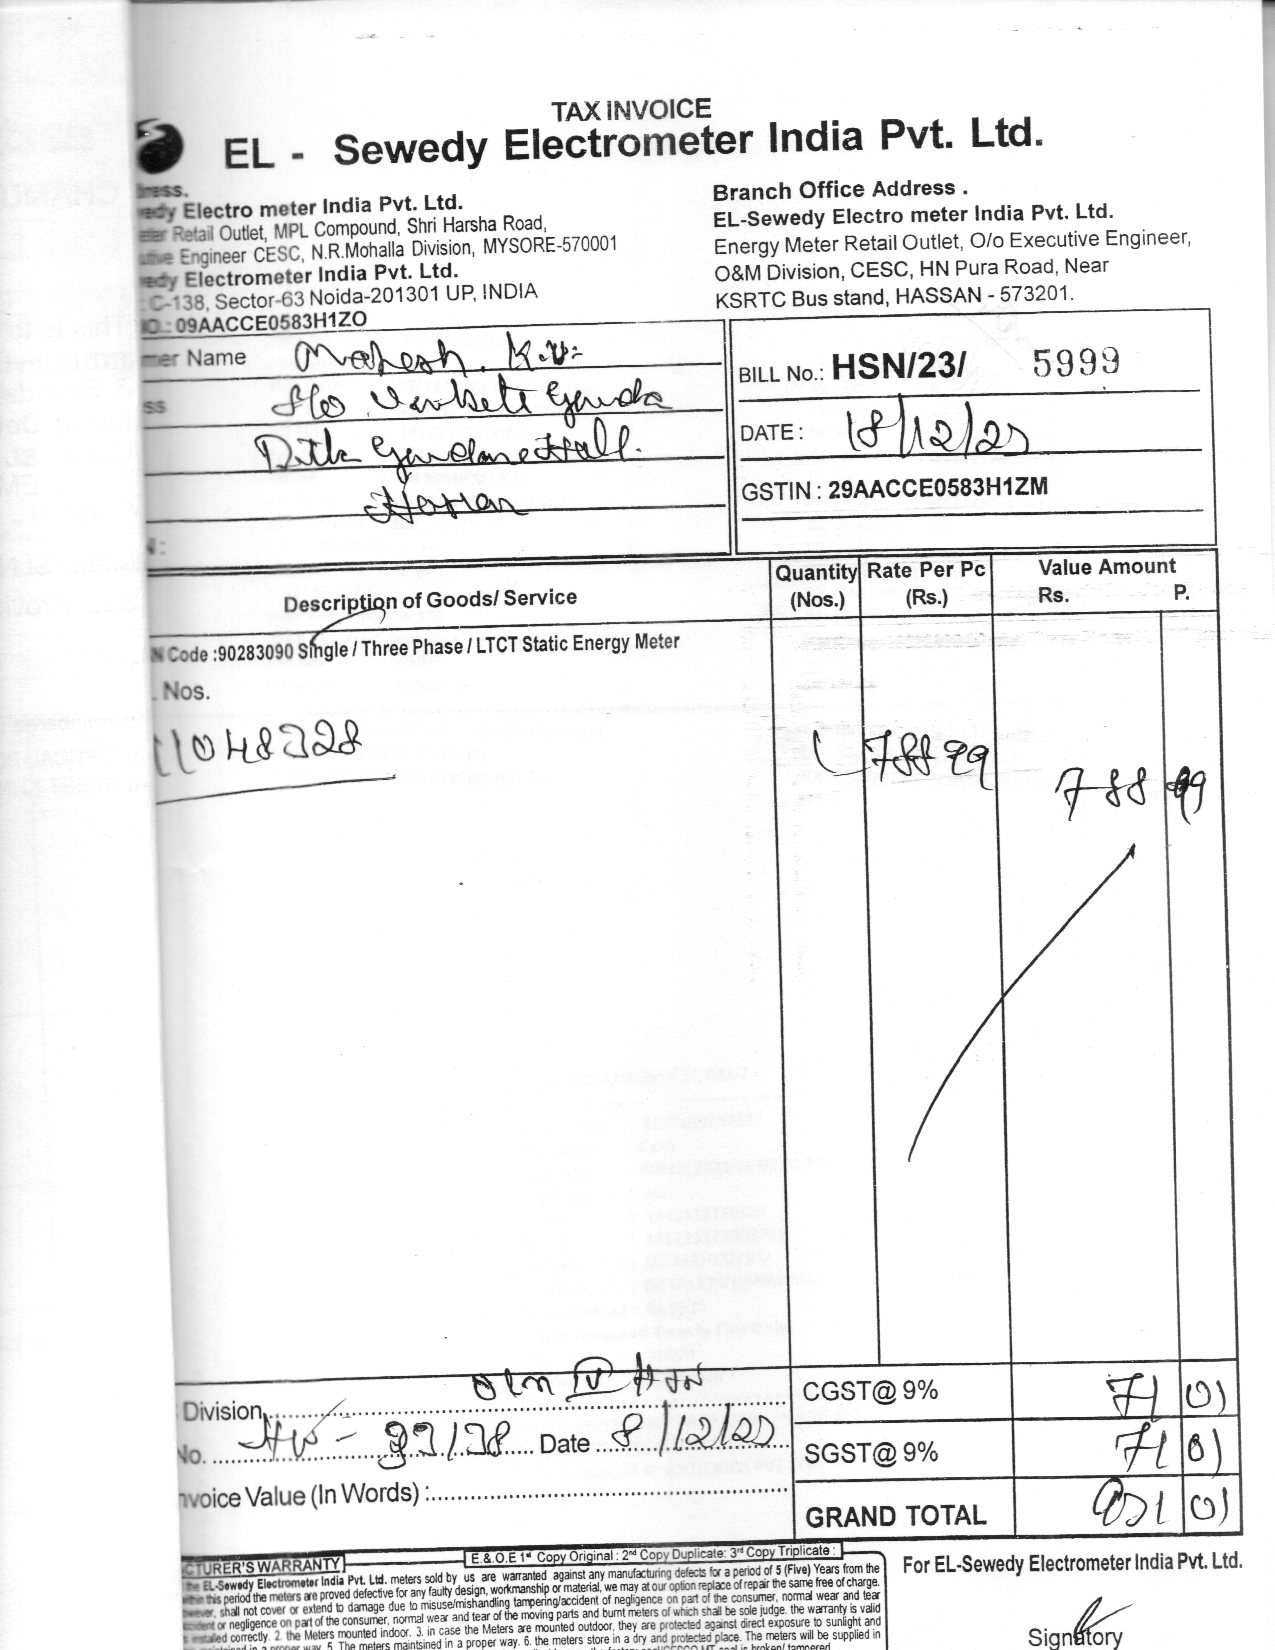 TAX INVOICE
EL - Sewedy Electrometer India Pvt. Ltd.
Electro meter India Pvt. Ltd.
Retail Outlet, MPL Compound, Shri Harsha Road,
Engineer CESC, N.R.Mohalla Division, MYSORE-570001
Electrometer India Pvt. Ltd.
C-138, Sector-63 Noida-201301 UP, INDIA
: 09AACCE0583H1ZO
Branch Office Address .
EL-Sewedy Electro meter India Pvt. Ltd.
Energy Meter Retail Outlet, O/o Executive Engineer,
O&M Division, CESC, HN Pura Road, Near
KSRTC Bus stand, HASSAN - 573201.
mer Name Mahesh. K.V.
ss S/o Venkate Gowda
Hassan
BILL No.: HSN/23/ 5999
DATE : 18/12/23
GSTIN : 29AACCE0583H1ZM
Description of Goods/ Service Quantity (Nos.) Rate Per Pc (Rs.) Value Amount Rs. P.
Code :90283090 Single / Three Phase / LTCT Static Energy Meter
. Nos.
11048328 1 788 99 788 99
O&M IV HSN
Division
No. Date 8/12/23
nvoice Value (In Words) :
CGST@ 9% 71 01
SGST@ 9% 71 01
GRAND TOTAL 931 01
E.&.O.E 1st Copy Original : 2nd Copy Duplicate: 3rd Copy Triplicate :
CTURER'S WARRANTY
EL-Sewedy Electrometer India Pvt. Ltd. meters sold by us are warranted against any manufacturing defects for a period of 5 (Five) Years from the
this period the meters are proved defective for any faulty design, workmanship or material, we may at our option replace of repair the same free of charge.
shall not cover or extend to damage due to misuse/mishandling tampering/accident of negligence on part of the consumer, normal wear and tear
or negligence on part of the consumer, normal wear and tear of the moving parts and burnt meters of which shall be sole judge. the warranty is valid
correctly. 2. the Meters mounted indoor. 3. in case the Meters are mounted outdoor, they are protected against direct exposure to sunlight and
way. 5. The meters maintsined in a proper way. 6. the meters store in a dry and protected place. The meters will be supplied in
For EL-Sewedy Electrometer India Pvt. Ltd.
Signatory